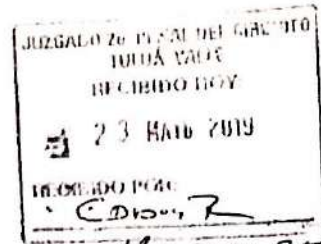 JUZGADO 2o PENAL DEL CIRCUITO
TULUÁ VALLE
RECIBIDO HOY
23 MAYO 2019
RECIBIDO POR: